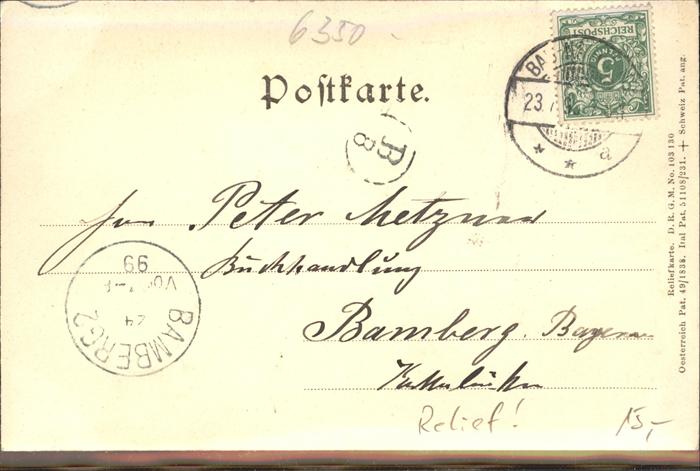 6350
Postkarte.
REICHSPOST
5
23.7.
a
B
8
Herrn Peter Metzner
Buchhandlung
Bamberg. Bayern
BAMBERG 2
24
99
Relief!
15,-
Reliefkarte. D. R. G. M. No. 103 130
Oesterreich Pat. 49/1838. Ital Pat. 51108/231. + Schweiz Pat. ang.